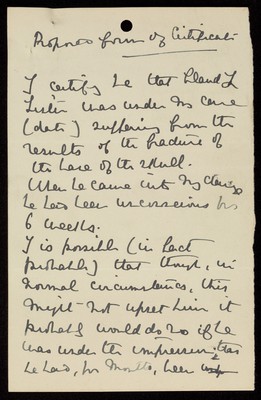 Proposed form of Certificate
I certify he that Eland L
Lister was under my care
(date) suffering from the
results of the fracture of
the base of the skull.
When he came into my charge
he had been unconscious for
6 weeks.
I is possible (in fact
probably) that though, in
normal circumstances, this
might not upset him it
probably would do so if he
was under the impression that
he had, for months, been